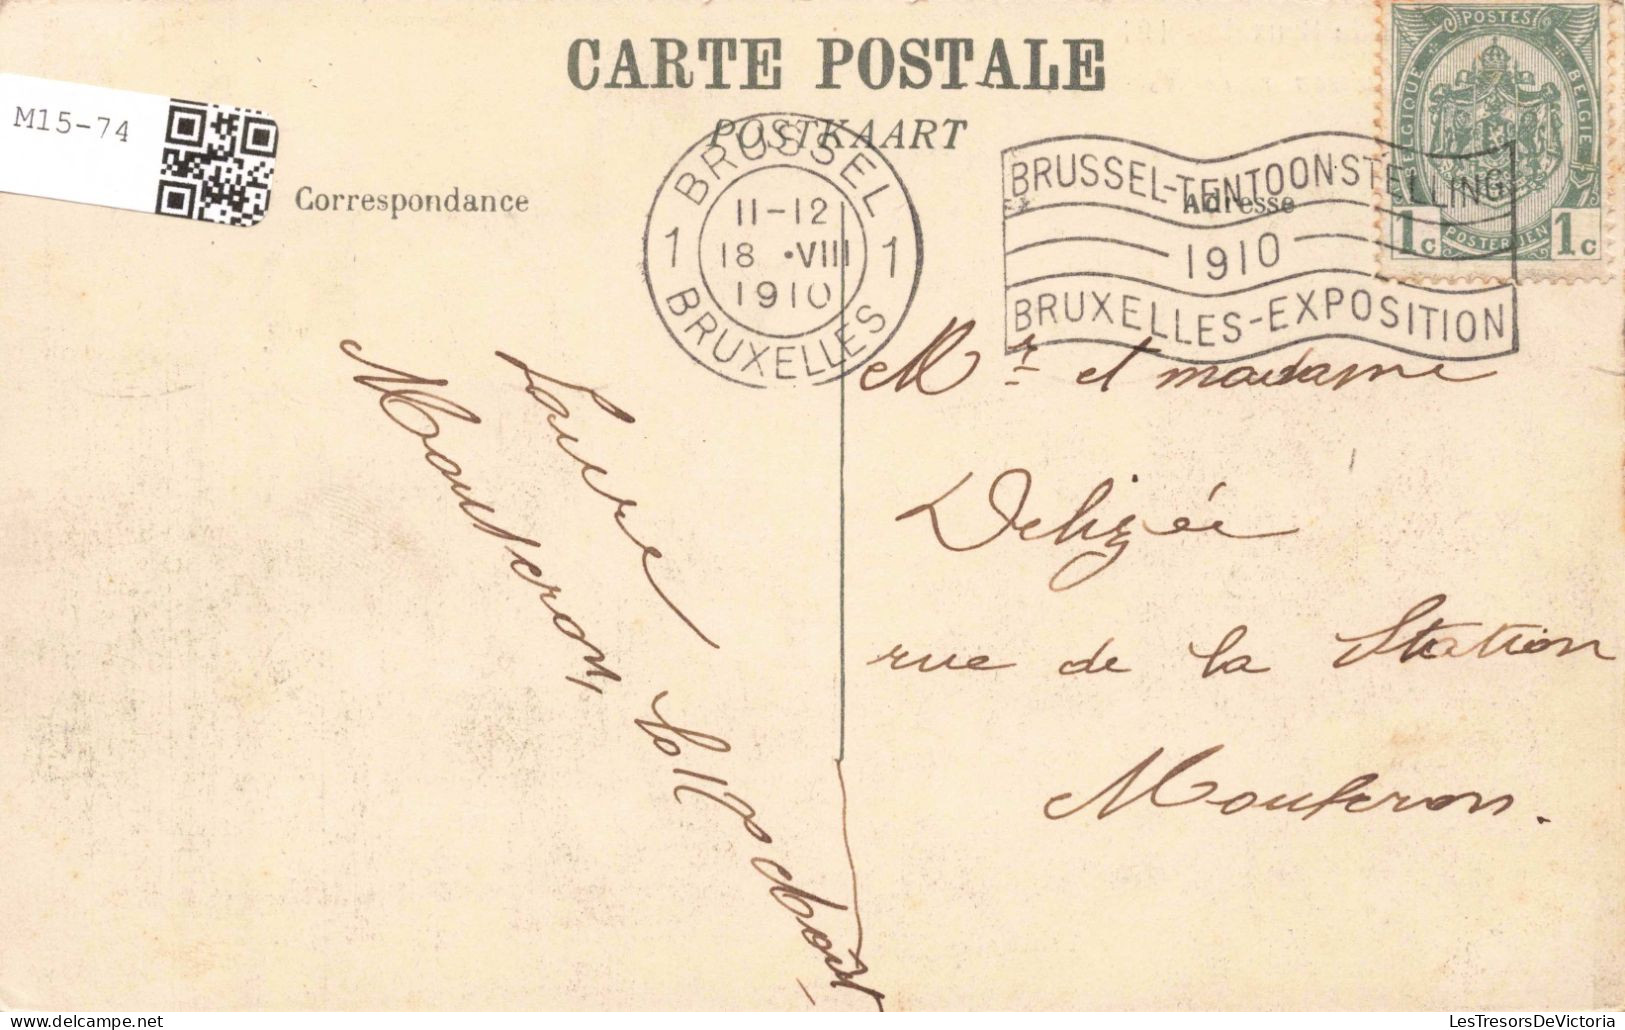 CARTE POSTALE
POSTKAART
M15-74
Correspondance
Adresse
BRUSSEL
11-12
1 18 •VIII 1
1910
BRUXELLES
BRUSSEL-TENTOONSTELLING
1910
BRUXELLES-EXPOSITION
POSTES
BELGIQUE
BELGIË
1c POSTERIJEN 1c
Mr et madame
Delizée
rue de la Station
Mouscron.
Laure
Mouscron,
LesTresorsDeVictoria